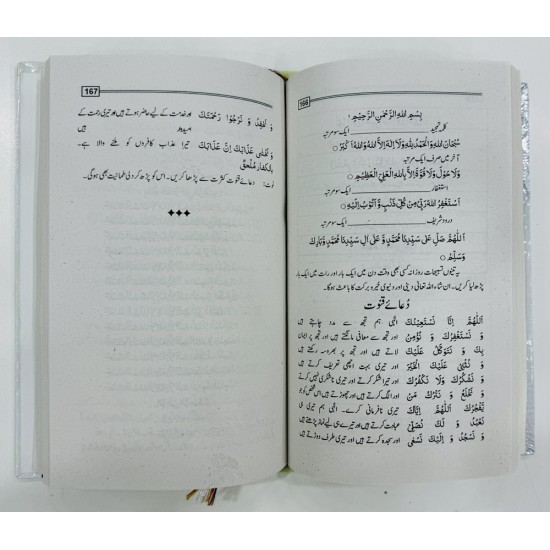 166
بِسْمِ اللهِ الرَّحْمٰنِ الرَّحِيْمِ
کلمہ تمجید ــــــــ ایک سو مرتبہ
سُبْحَانَ اللهِ وَالْحَمْدُ لِلّٰهِ وَلَآ اِلٰهَ اِلَّا اللهُ وَاللهُ اَكْبَرُ
آخر میں صرف ایک مرتبہ
وَلَا حَوْلَ وَلَا قُوَّةَ اِلَّا بِاللهِ الْعَلِيِّ الْعَظِيْمِ
استغفار ــــــــ ایک سو مرتبہ
اَسْتَغْفِرُ اللهَ رَبِّيْ مِنْ كُلِّ ذَنْبٍ وَّ اَتُوْبُ اِلَيْهِ
درود شریف ــــــــ ایک سو مرتبہ
اَللّٰهُمَّ صَلِّ عَلٰى سَيِّدِنَا مُحَمَّدٍ وَّ عَلٰى اٰلِ سَيِّدِنَا مُحَمَّدٍ وَّ بَارِكْ
وَسَلِّمْ
یہ تینوں تسبیحات روزانہ کسی بھی وقت دن میں ایک بار اور رات میں ایک بار
پڑھ لیا کریں۔ ان شاء اللہ تعالیٰ دینی اور دنیوی خیر و برکت کا باعث ہوگا۔
دُعائے قنوت
اَللّٰهُمَّ اِنَّا نَسْتَعِيْنُكَ الٰہی ہم تجھ سے مدد چاہتے ہیں
وَ نَسْتَغْفِرُكَ وَ نُؤْمِنُ اور تجھ سے معافی مانگتے ہیں اور تجھ پر ایمان
بِكَ وَ نَتَوَكَّلُ عَلَيْكَ لاتے ہیں اور تجھ پر بھروسہ رکھتے ہیں
وَ نُثْنِيْ عَلَيْكَ الْخَيْرَ اور تیری بہت اچھی تعریف کرتے ہیں
وَ نَشْكُرُكَ وَلَا نَكْفُرُكَ اور تیرا شکر کرتے ہیں اور تیری ناشکری نہیں کرتے
وَ نَخْلَعُ وَ نَتْرُكُ مَنْ اور الگ کرتے ہیں اور چھوڑتے ہیں اس شخص کو جو
يَّفْجُرُكَ اَللّٰهُمَّ اِيَّاكَ تیری نافرمانی کرے۔ الٰہی ہم تیری ہی
نَعْبُدُ وَ لَكَ نُصَلِّيْ عبادت کرتے ہیں اور تیرے ہی لیے نماز پڑھتے ہیں
وَ نَسْجُدُ وَ اِلَيْكَ نَسْعٰى اور سجدہ کرتے ہیں اور تیری طرف دوڑتے ہیں
167
وَ نَحْفِدُ وَ نَرْجُوْا رَحْمَتَكَ اور خدمت کے لیے حاضر ہوتے ہیں اور تیری رحمت کے امیدوار
ہیں
وَ نَخْشٰى عَذَابَكَ اِنَّ عَذَابَكَ تیرا عذاب کافروں کو ملنے والا ہے۔
بِالْكُفَّارِ مُلْحِقٌ
نوٹ: دعائے قنوت کثرت سے پڑھا کریں۔ اس کو پڑھ کر دلی طمانیت بھی ہوگی۔